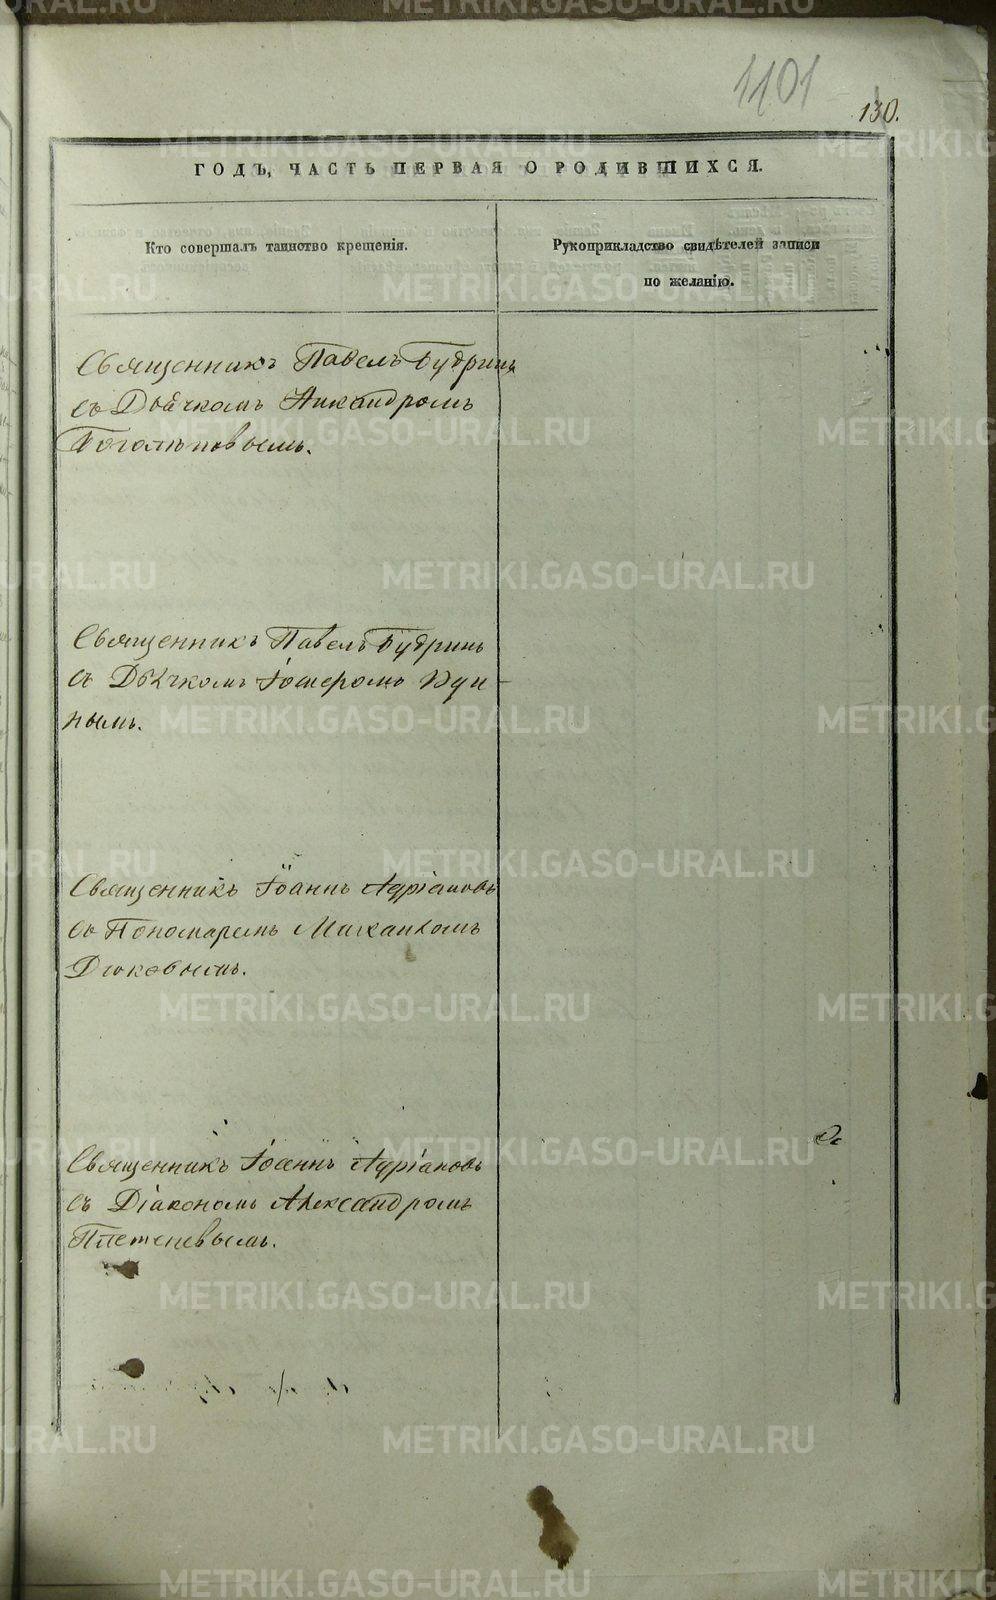 1101
130.
ГОДЪ, ЧАСТЬ ПЕРВАЯ О РОДИВШИХСЯ.
Кто совершалъ таинство крещенія.
Рукоприкладство свидѣтелей записи
по желанію.
Священникъ Павелъ Будринъ
съ Дьячкомъ Никандромъ
Боголѣповымъ.
Священникъ Павелъ Будринъ
съ Дьячкомъ
нымъ.
Священникъ Іоаннъ Адріановъ
съ Пономаремъ
Дюковымъ.
Священникъ Іоаннъ Адріановъ
съ Діакономъ Александромъ
Плетеневымъ.
METRIKI.GASO-URAL.RU